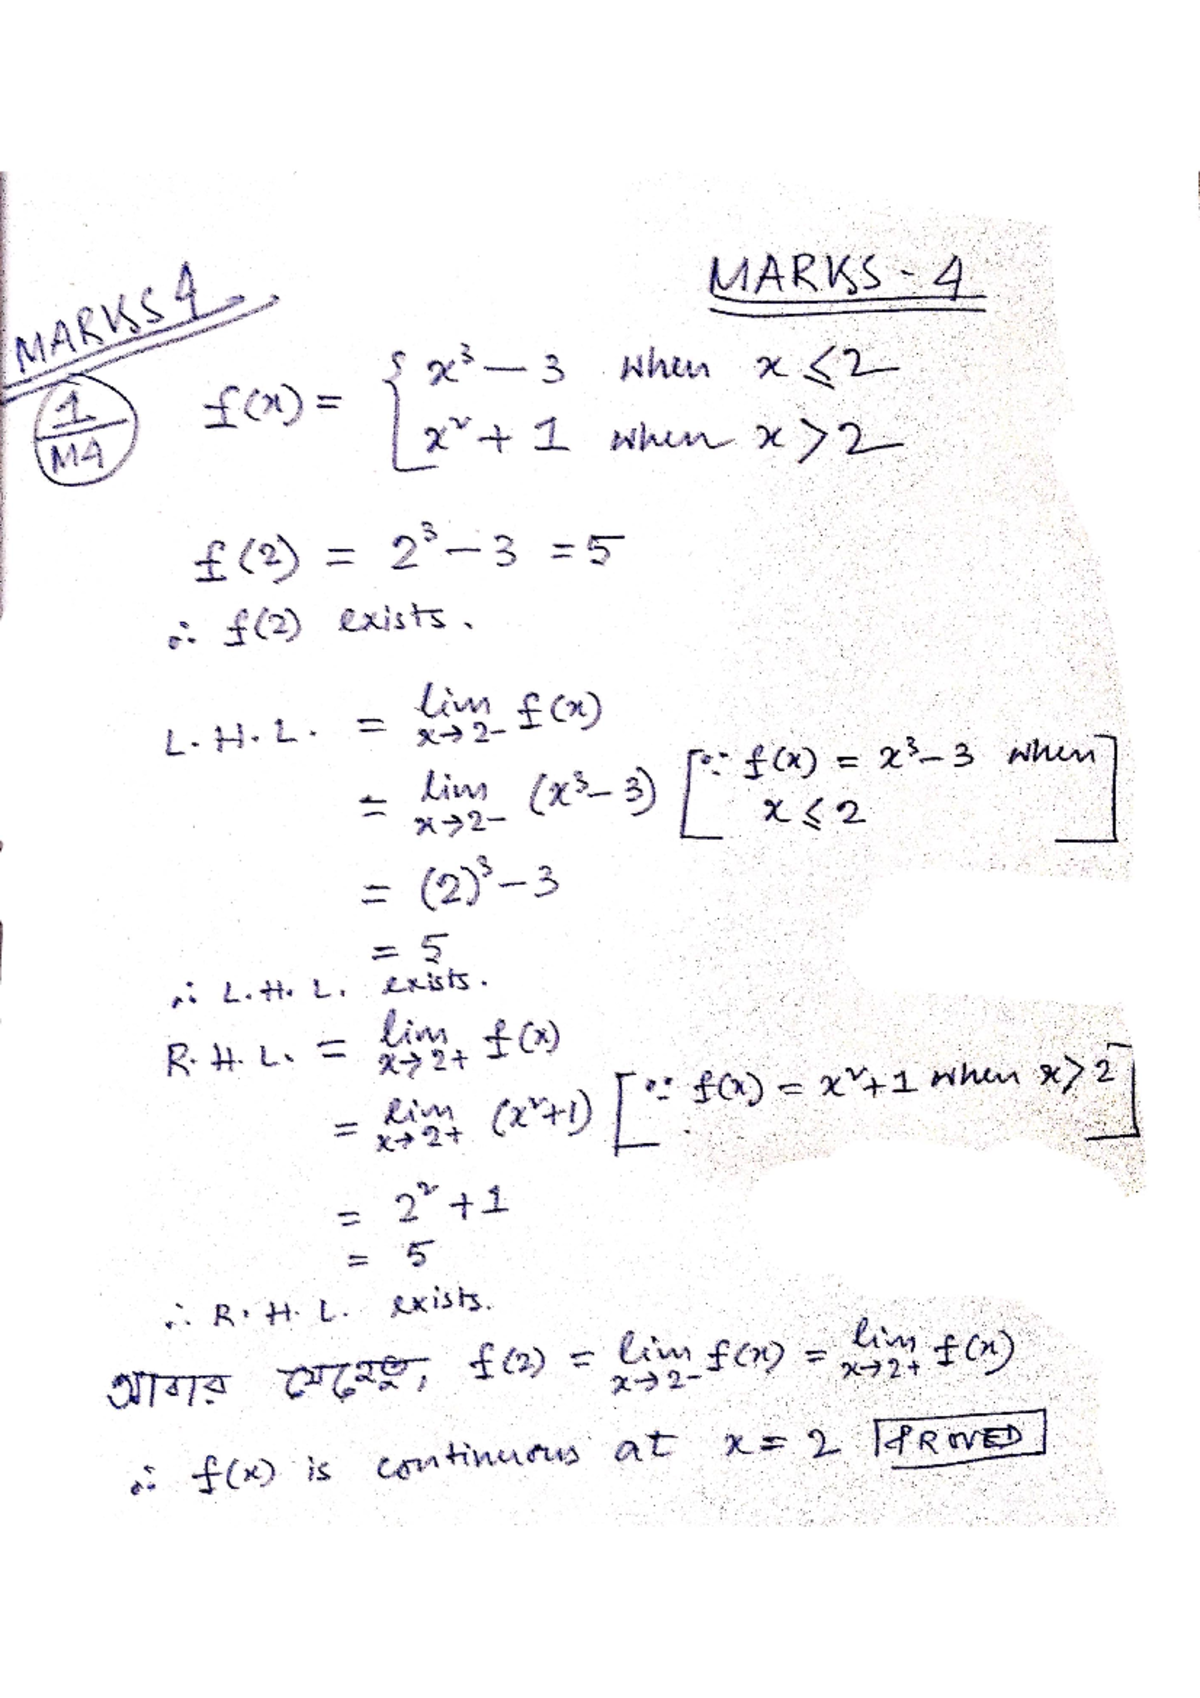 MARKS - 4
MARKS 4
1/M4
f(x) = { x³ − 3 when x ⩽ 2
x² + 1 when x > 2
f(2) = 2³ − 3 = 5
∴ f(2) exists.
L.H.L. = lim x→2− f(x)
= lim x→2− (x³ − 3) [∵ f(x) = x³ − 3 when x ⩽ 2]
= (2)³ − 3
= 5
∴ L.H.L. exists.
R.H.L. = lim x→2+ f(x)
= lim x→2+ (x²+1) [∵ f(x) = x²+1 when x > 2]
= 2² + 1
= 5
∴ R.H.L. exists.
আবার যেহেতু, f(2) = lim x→2− f(x) = lim x→2+ f(x)
∴ f(x) is continuous at x = 2 PROVED